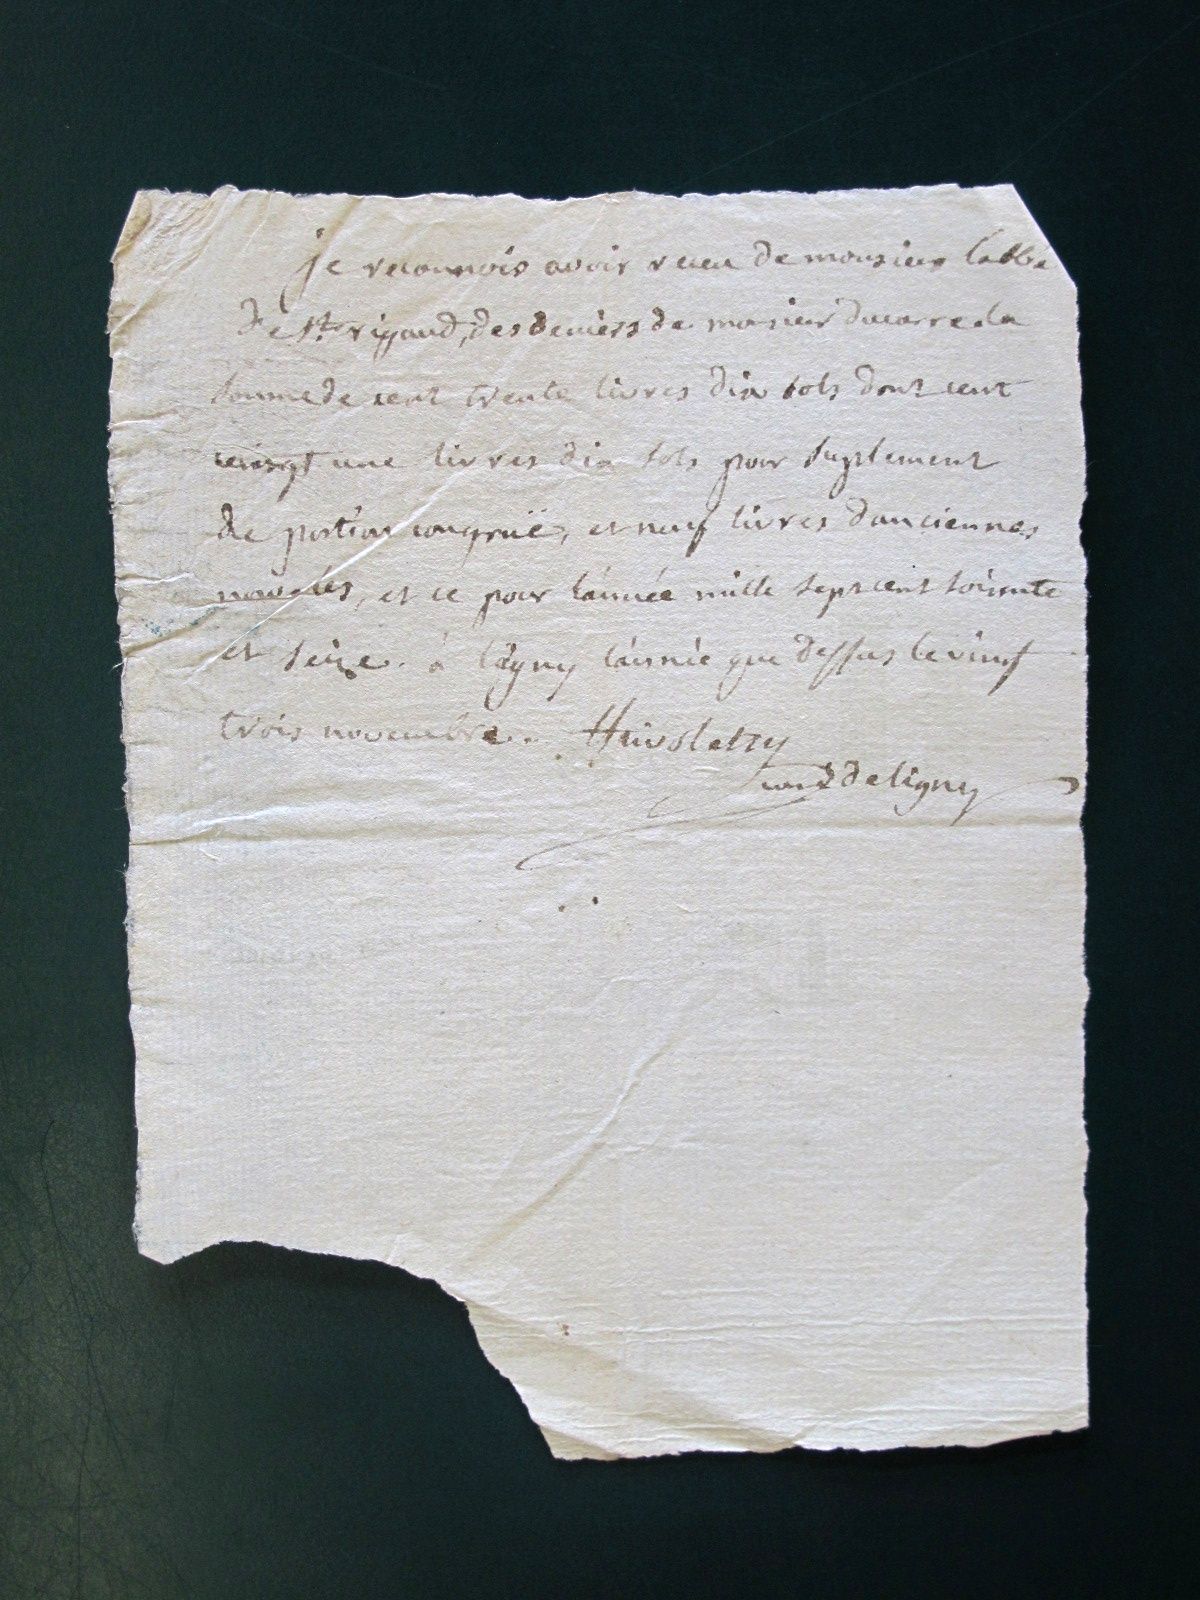 je reconnois avoir receu de monsieur labbe
de st rigaud, des deniers de monsieur ducarre la
somme de cent trente livres dix sols dont cent
vingt une livres dix sols pour suplement
de portion congruë, et neuf livres danciennes
novales, et ce pour lannée mille sept cent soixante
et seize. à ligny lannée que dessus le vint
trois novembre.
curé de ligny